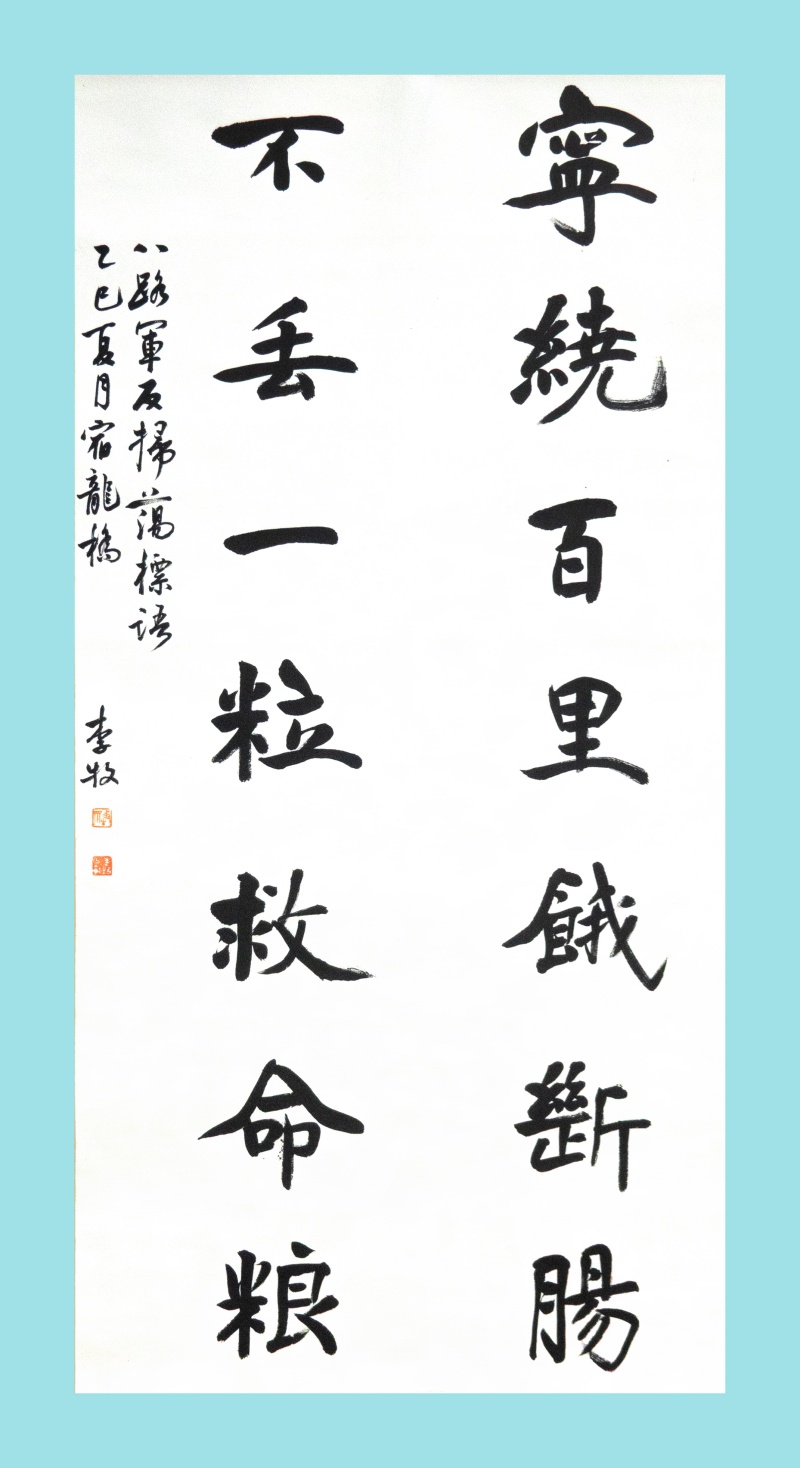 寧繞百里餓斷腸
不丢一粒救命粮
八路軍反掃蕩標語
乙巳夏月宿龍橋
李牧